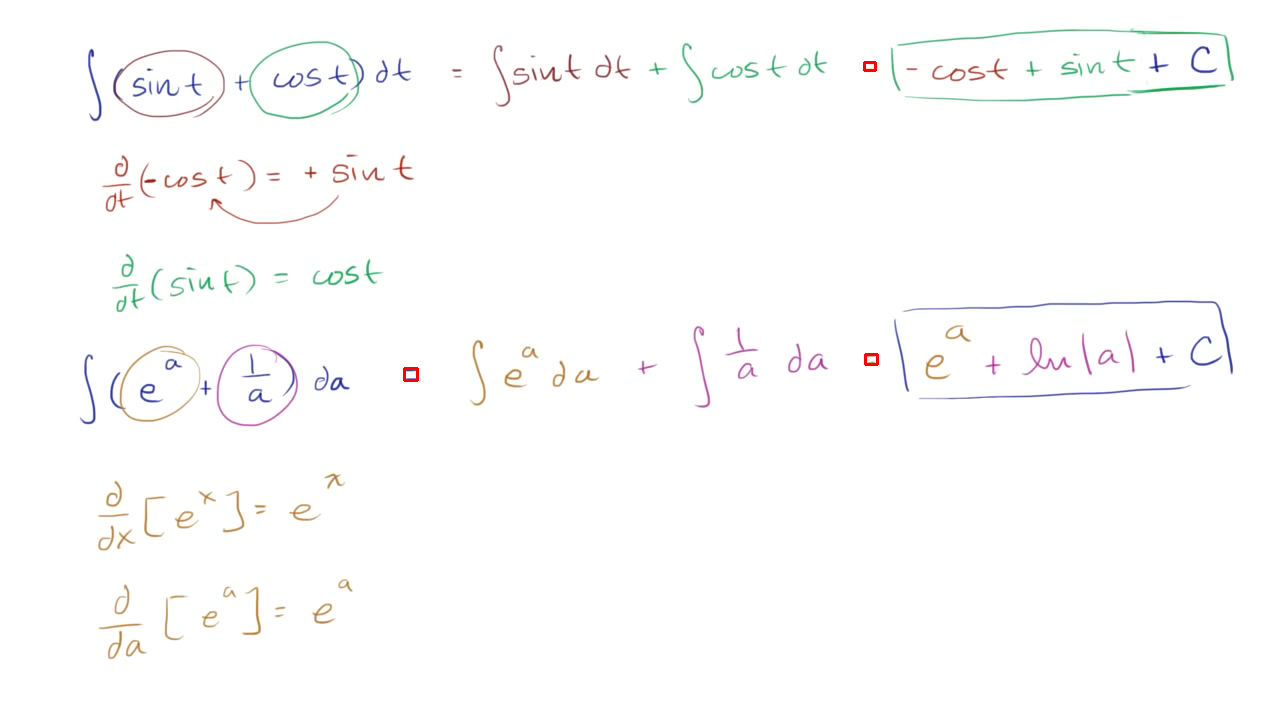 ∫(sin t + cos t) dt = ∫sin t dt + ∫cos t dt ▫ - cos t + sin t + C
d/dt (-cos t) = + sin t
d/dt (sin t) = cos t
∫(e^a + 1/a) da ▫ ∫e^a da + ∫ 1/a da ▫ e^a + ln|a| + C
d/dx [e^x] = e^x
d/da [e^a] = e^a